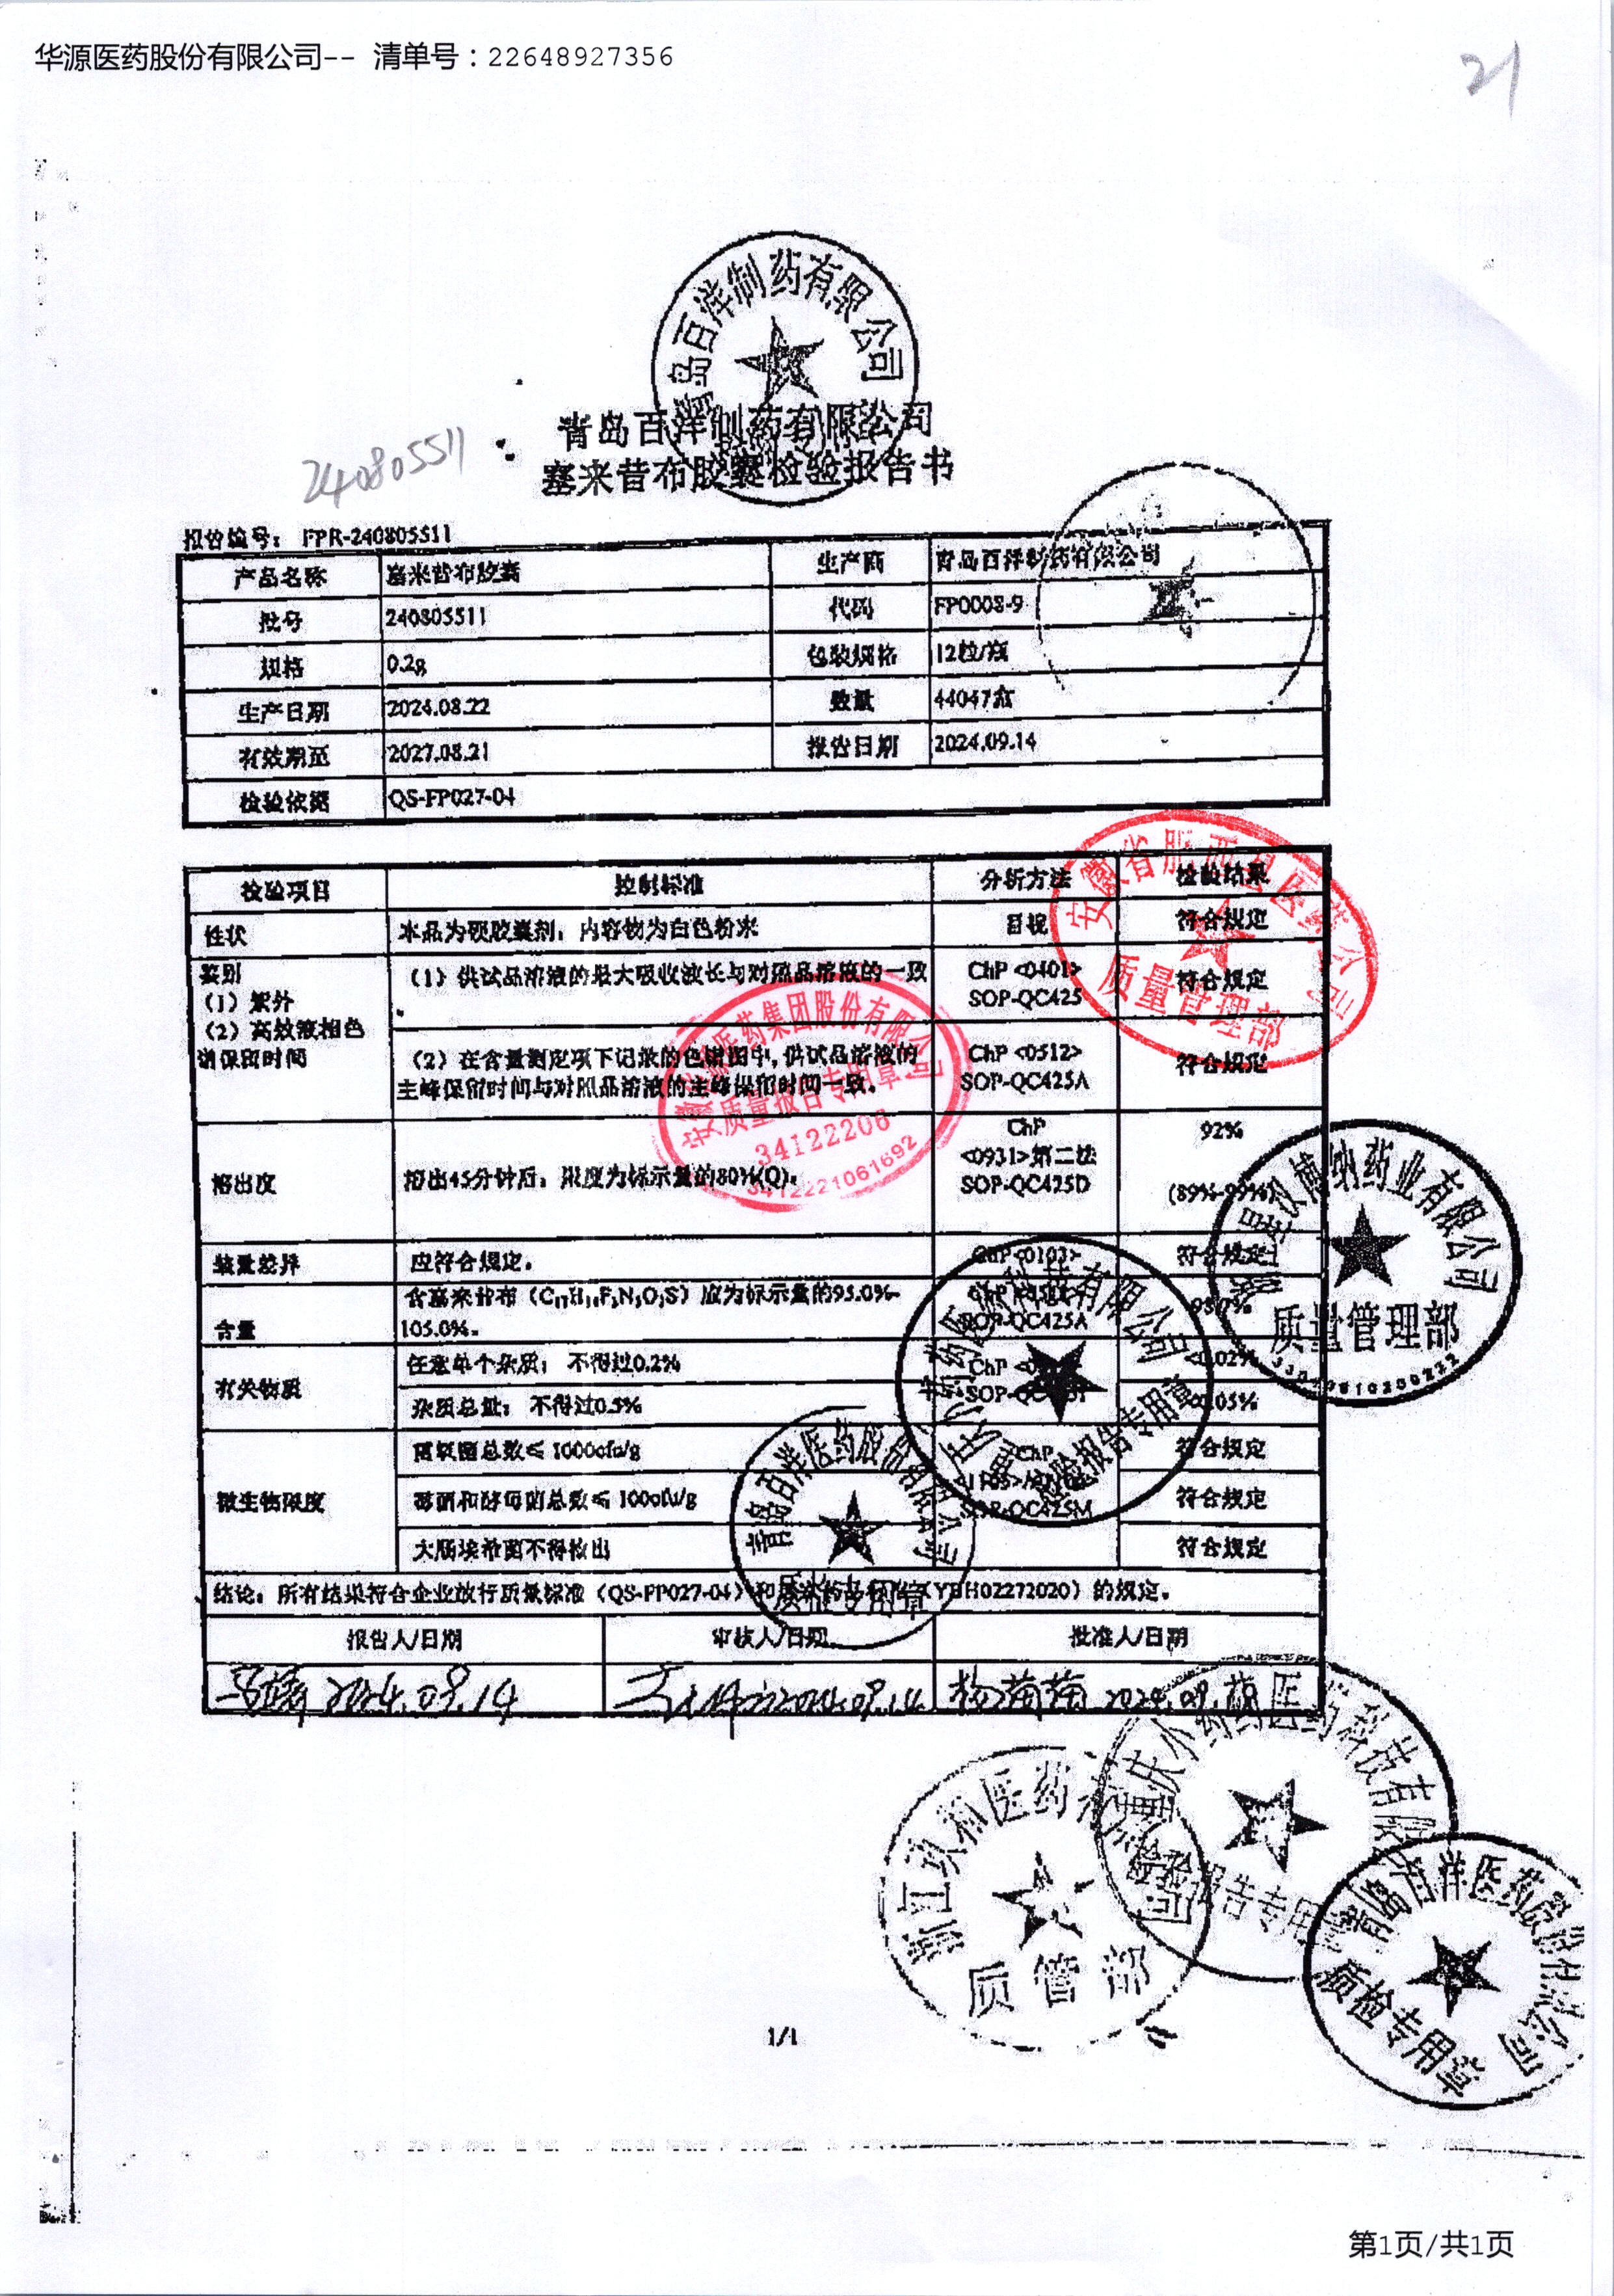 华源医药股份有限公司-- 清单号：22648927356
21
青岛百洋制药有限公司
青岛百洋制药有限公司
塞来昔布胶囊检验报告书
240805511
报告编号： FPR-240805511
产品名称 塞来昔布胶囊 生产商 青岛百洋制药有限公司
批号 240805511 代码 FP0008-9
规格 0.2g 包装规格 12粒/瓶
生产日期 2024.08.22 数量 44047盒
有效期至 2027.08.21 报告日期 2024.09.14
检验依据 QS-FP027-04
检验项目 控制标准 分析方法 检验结果
性状 本品为硬胶囊剂，内容物为白色粉末 目视 符合规定
鉴别
（1）紫外 （1）供试品溶液的最大吸收波长与对照品溶液的一致 ChP <0401> SOP-QC425 符合规定
（2）高效液相色谱保留时间 （2）在含量测定项下记录的色谱图中，供试品溶液的
主峰保留时间与对照品溶液的主峰保留时间一致。 ChP <0512> SOP-QC425A 符合规定
溶出度 溶出45分钟后，限度为标示量的80%(Q)。 ChP <0931>第二法 SOP-QC425D 92% (89%-99%)
装量差异 应符合规定。 ChP<0103> 符合规定
含量 含塞来昔布 应为标示量的95.0%-
105.0%。 SOP-QC425A
有关物质 任意单个杂质： 不得过0.2% ChP
杂质总量： 不得过0.5%
微生物限度 需氧菌总数≤ 1000cfu/g ChP 符合规定
霉菌和酵母菌总数≤ 100cfu/g SOP-QC425M 符合规定
大肠埃希菌不得检出 符合规定
结论：所有结果符合企业放行质量标准（QS-FP027-04）和 （YBH02272020）的规定。
报告人/日期 审核人/日期 批准人/日期
2024.09.14 2024.09.14 杨蒲蒲
安徽省肥西县医药公司
质量管理部
医药集团股份有限公司
质量报告专用章
34122206
3412221061692
博纳药业有限公司
质量管理部
有限公司
检验报告专用章
青岛百洋医药股份有限公司
质检专用章
浙江玖和医药
质管部
重庆小药药医药科技有限
检验报告专用
青岛百洋医药股份有限公司
质检专用章
1/1
第1页/共1页